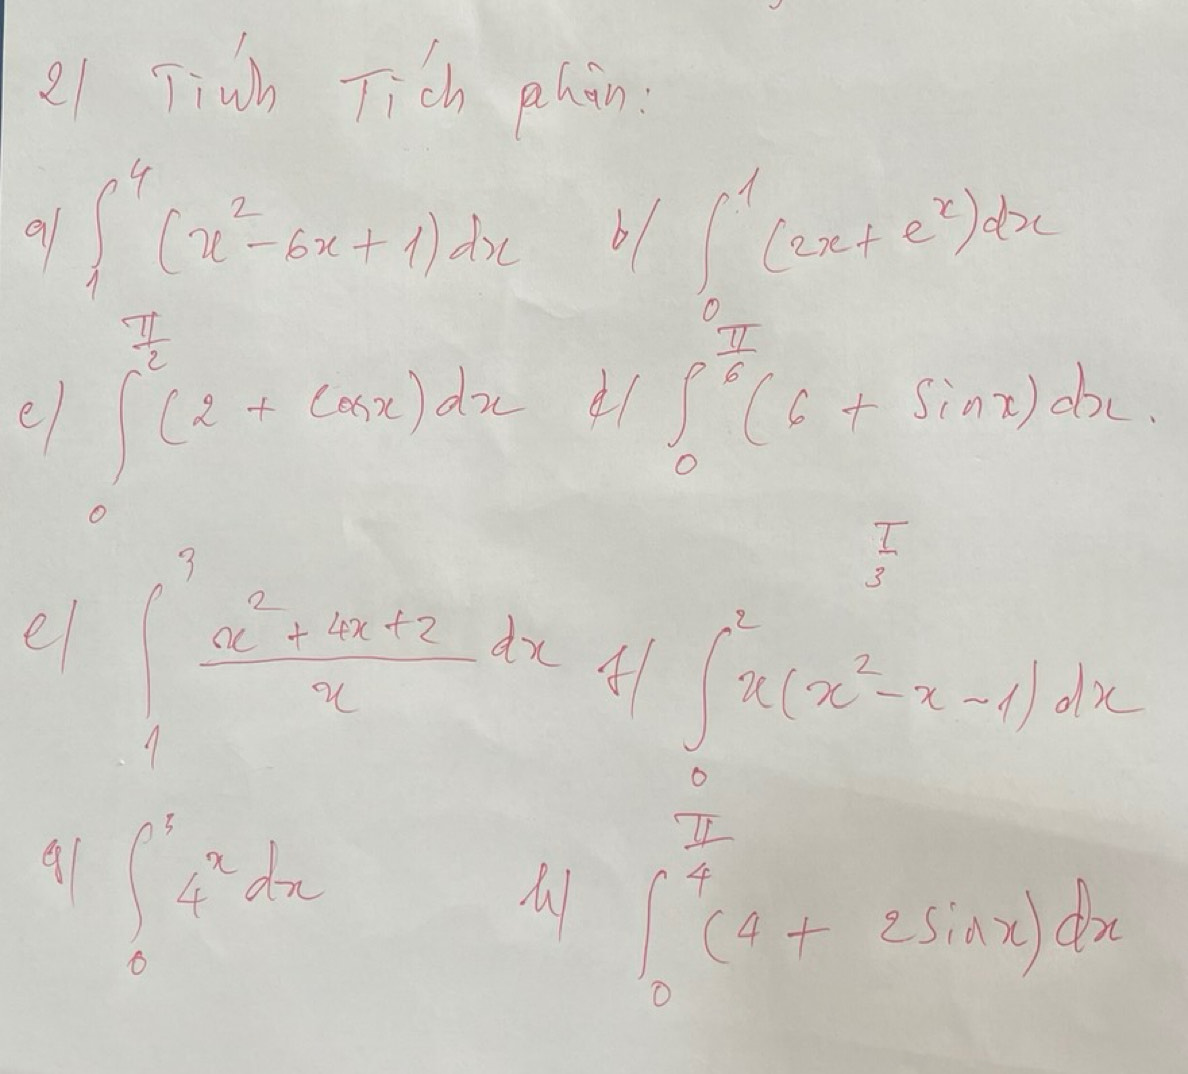 2/ Tính Tích phân:
a/ ∫₁⁴ (x² - 6x + 1) dx b/ ∫₀¹ (2x + eˣ) dx
c/ ∫₀^(π/2) (2 + cosx) dx d/ ∫₀^(π/6) (6 + sinx) dx.
π/3
e/ ∫₁³ (x² + 4x + 2)/x dx f/ ∫₀² x(x² - x - 1) dx
g/ ∫₀³ 4ˣ dx h/ ∫₀^(π/4) (4 + 2sinx) dx